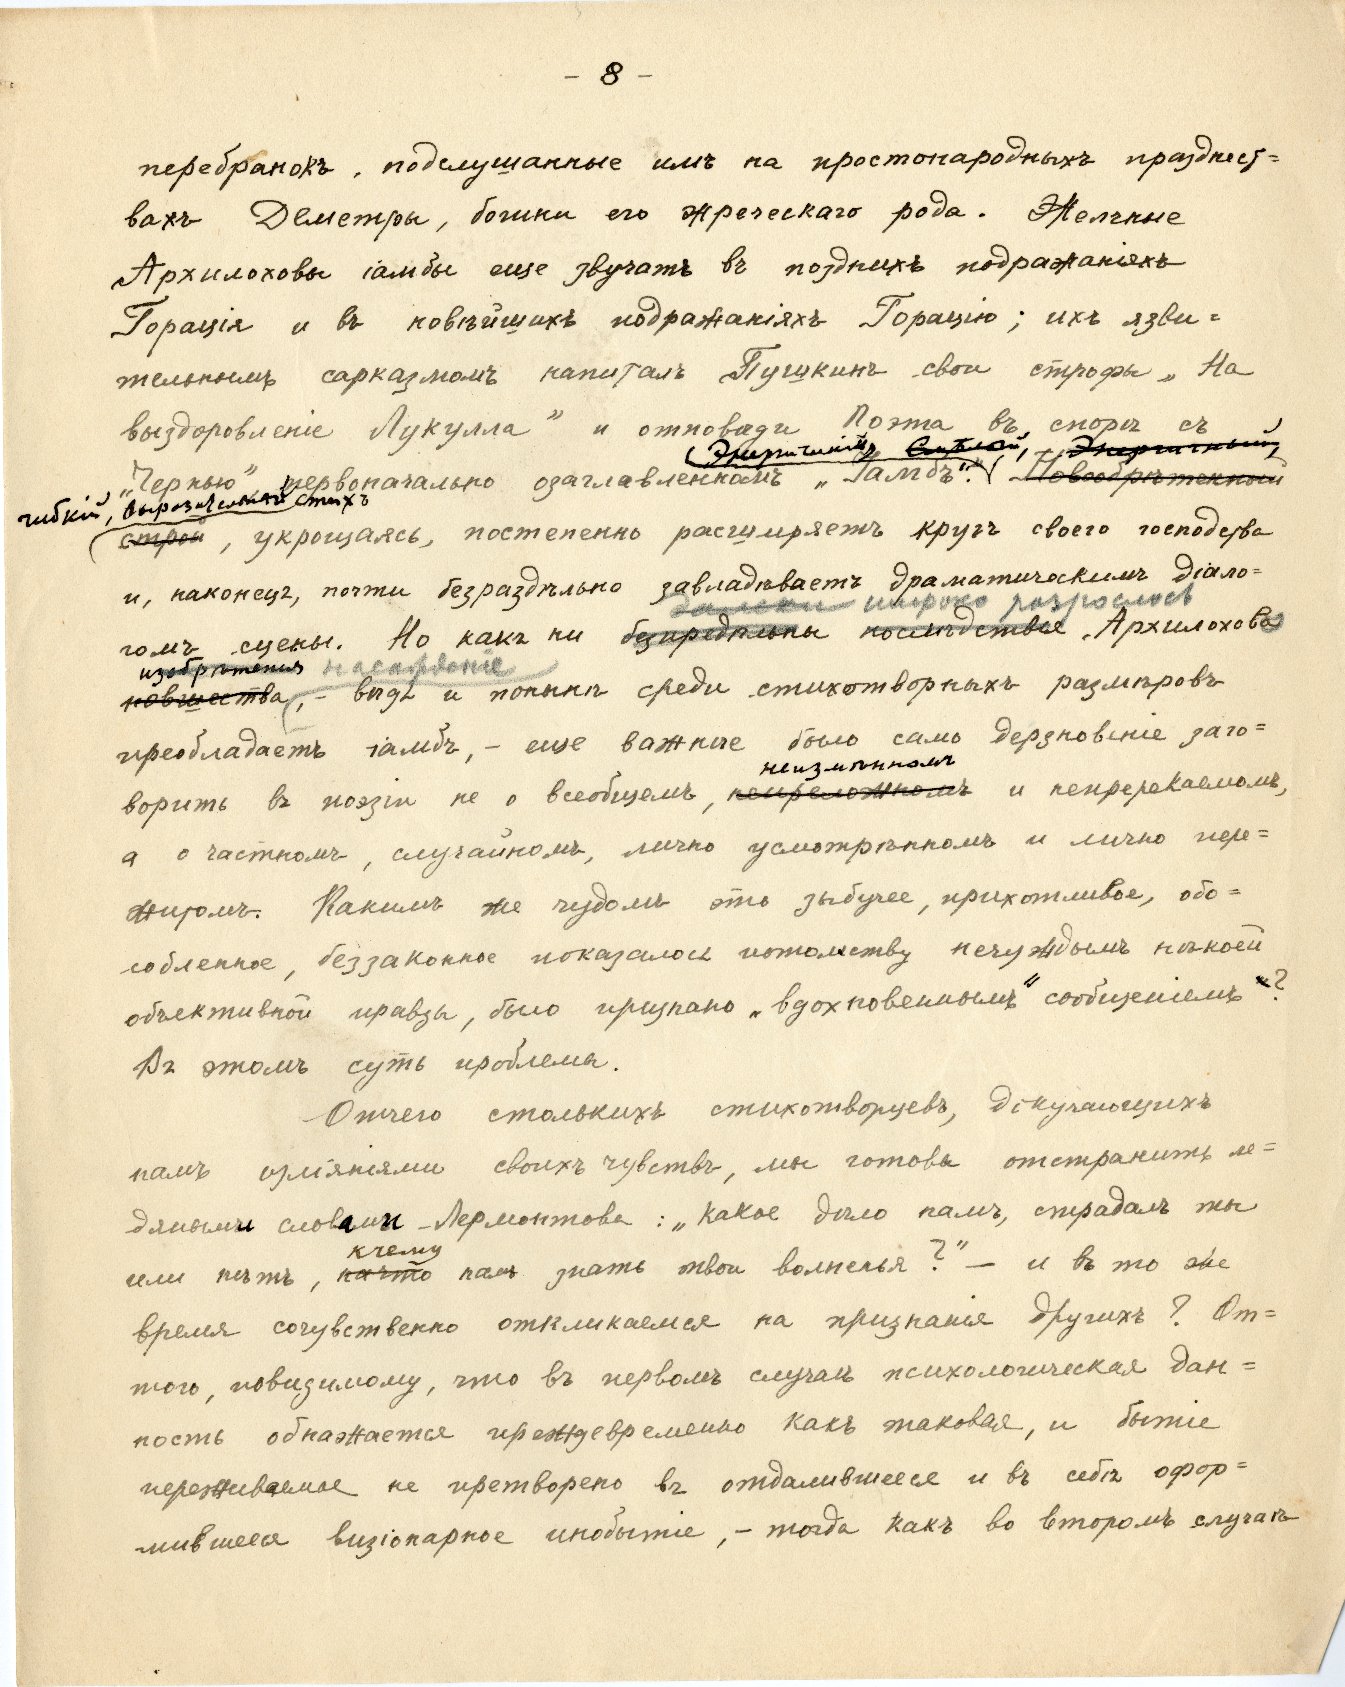 - 8 -
перебранокъ, подслушанные имъ на простонародныхъ празднест=
вахъ Деметры, богини его жреческаго рода. Желчные
Архилоховы іамбы еще звучатъ въ позднихъ подражаніяхъ
Горація и въ новѣйшихъ подражаніяхъ Горацію; ихъ язви=
тельнымъ сарказмомъ напиталъ Пушкинъ свои строфы „На
выздоровленіе Лукулла” и отповѣди Поэта въ спорѣ съ
Энергическій, Смѣлый, Энергичный,
„Чернью” первоначально озаглавленномъ „Іамбъ”. Новообрѣтенный
гибкій, выразительный стихъ
строй, укрощаясь, постепенно расширяетъ кругъ своего господства
и, наконецъ, почти безраздѣльно завладѣваетъ драматическимъ діало=
далеко широко разрослось
гомъ сцены. Но какъ ни безпредѣльны послѣдствія Архилохова
изобрѣтенія насажденіе
новшества, - вѣдь и понынѣ среди стихотворныхъ размѣровъ
преобладаетъ іамбъ, - еще важнѣе было само дерзновеніе заго=
неизмѣнномъ
ворить въ поэзіи не о всеобщемъ, непреложномъ и непререкаемомъ,
а о частномъ, случайномъ, лично усмотрѣнномъ и лично пере=
житомъ. Какимъ же чудомъ это зыбучее, прихотливое, обо=
собленное, беззаконное показалось потомству нечуждымъ нѣкоей
объективной правды, было признано „вдохновеннымъ“ сообщеніемъ“?
Въ этомъ суть проблемы.
Отчего столькихъ стихотворцевъ, докучающихъ
намъ изліяніями своихъ чувствъ, мы готовы отстранить ле=
дяными словами Лермонтова: „какое дѣло намъ, страдалъ ты
къ чему
или нѣтъ, на что намъ знать твои волненья?” — и въ то же
время сочувственно откликаемся на признанія другихъ? От=
того, повидимому, что въ первомъ случаѣ психологическая дан=
ность обнажается преждевременно какъ таковая, и бытіе
переживаемое не претворено въ отдалившееся и въ себѣ офор=
мившееся визіонарное инобытіе, - тогда какъ во второмъ случаѣ